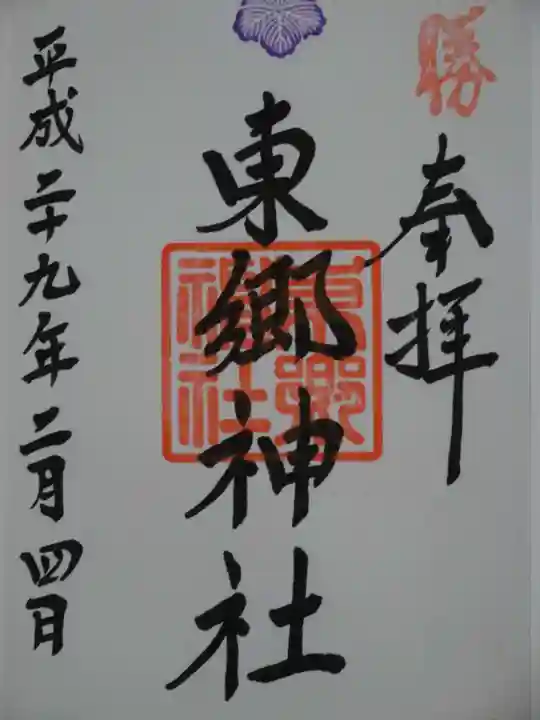 勝
奉拝
東郷神社
東郷神社
平成二十九年二月四日